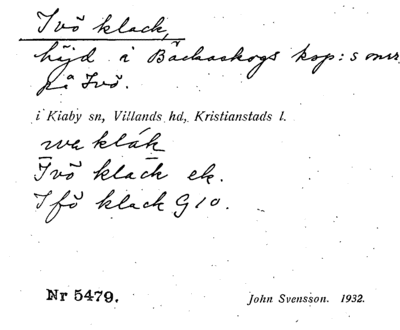 Ivö klack,
höjd i Bäckaskogs kop:s omr.
på Ivö.
i Kiaby sn, Villands hd, Kristianstads l.
klák
Ivö klack ek.
Ifö klack G 10.
Nr 5479.
John Svensson. 1932.